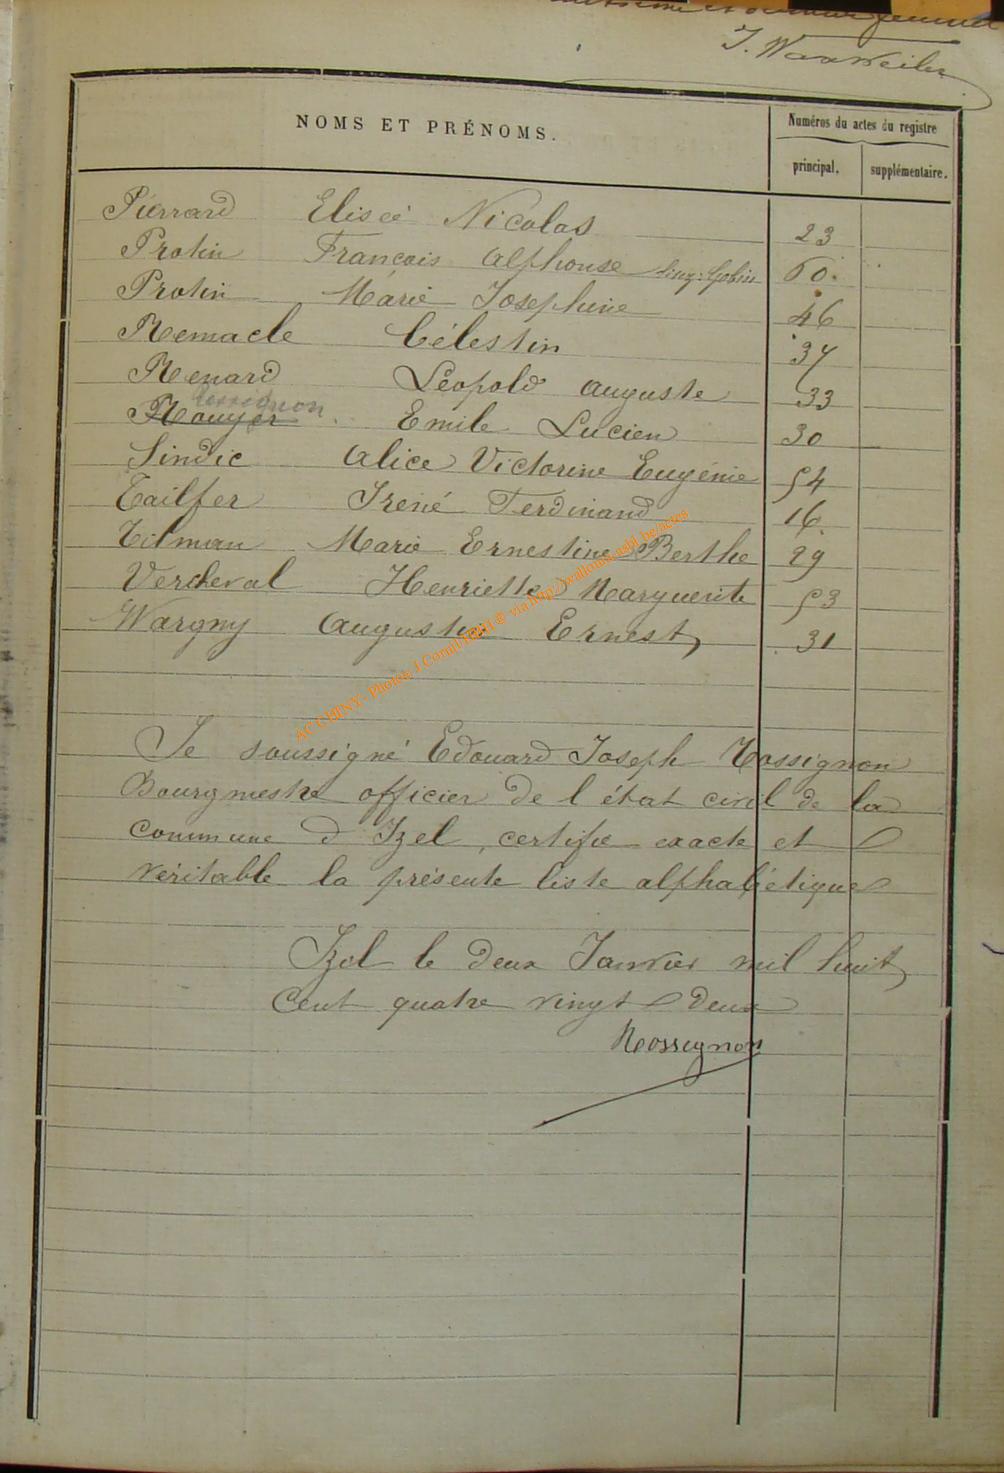 J. Waxweiler
NOMS ET PRÉNOMS.
Numéros du actes du registre
principal.
supplémentaire.
Pierrard Elisée Nicolas 23
Protin François Alphonse 60.
Protin Marie Josephine 46
Remacle Célestin 37
Renard Léopold Auguste 33
Rossignon
Rouyer Emile Lucien 30
Sindic Alice Victorine Eugénie 54
Tailfer Irené Ferdinand 16.
Tilman Marie Ernestine Berthe 29
Vercheval Henriette Marguerite 53
Wargny Augustin Ernest 31
AC CHINY - Photos J.Cornil 10/2011 @ via http://wallonia-asbl.be/actes
Je soussigné Edouard Joseph Rossignon
Bourgmestre officier de l état civil de la
commune d Izel, certifie exacte et
véritable la présente liste alphabétique
Izel le deux Janvier mil huit
cent quatre vingt deux
Rossignon